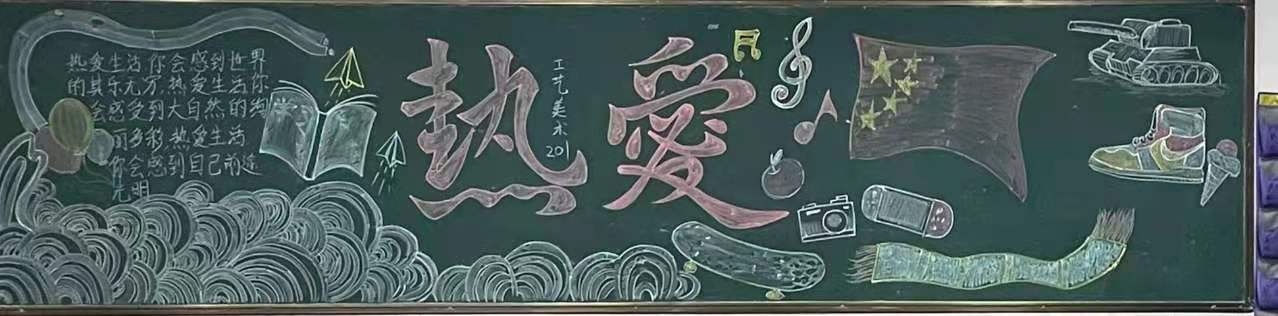 热爱生活你会感到世界
的其乐无穷.热爱生活你
会感受到大自然的绚
丽多彩.热爱生活
你会感到自己前途
光明
熱愛
工艺美术201